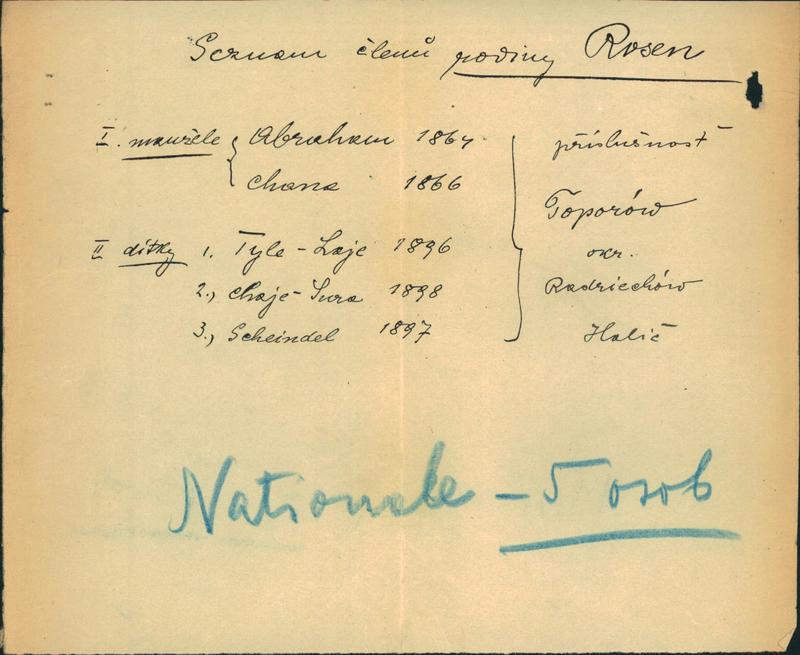 Seznam členů rodiny Rosen
I. manžele { Abraham 1864 příslušnost
Chana 1866 Toporów
II dítky 1. Tyle - Laje 1896 okr.
2., Chaje - Sura 1898 Radziechów
3., Scheindel 1897 Halič
Nationale - 5 osob